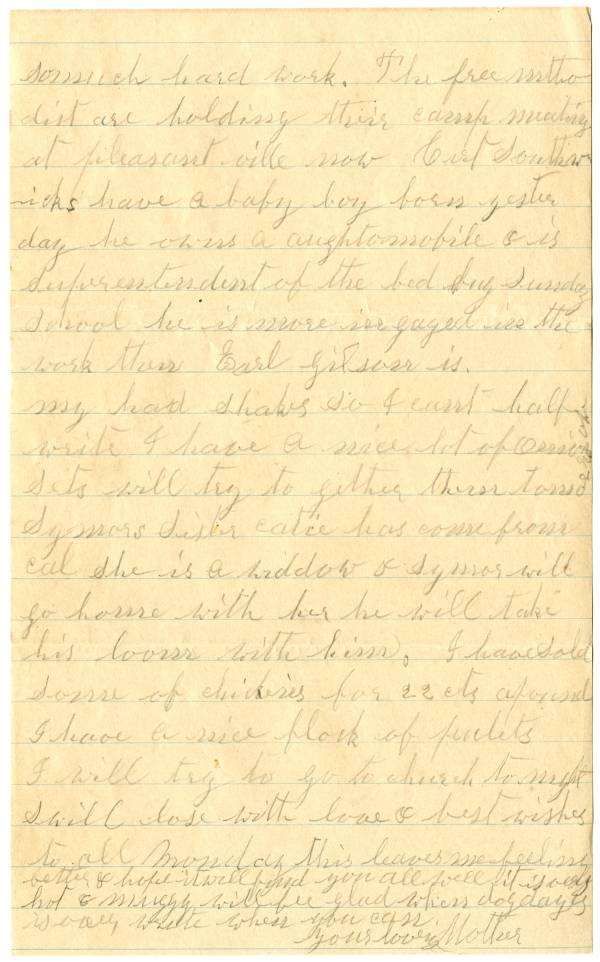 somuch hard work. The free metho
dist are holding their camp meating
at pleasant ville now Curt Southw
icks have a baby boy born yester
day he owns a aughtomobile & is
superentendent of the bed bug Sunday
School he is more in gaged in the
work then Earl Gilson is.
my had shakes so I cannt half
write I have a nice lot of onion
Sets will try to gether them tomo
rrow
Symors Sister catie has come from
cal she is a widdow & Symor will
go home with her he will take
his loom with him. I have sold
some of chickens for 22 cts apound
I have a nice flock of pulets
I will try to go to church to night
I will close with love & best wishes
to all Monday this leaves me feeling
better & hope it will find you all well it is very
hot & muggy will be glad when dog days
is over write when you can
your loving Mother